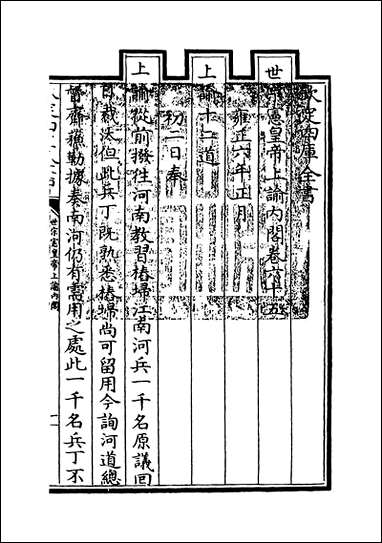 欽定四庫全書
世宗憲皇帝上諭內閣卷六十五
雍正六年正月
上諭十二道
初二日奉
上諭從前撥往河南教習樁埽江南河兵一千名原議回
日裁汰但此兵丁既熟悉樁埽尚可留用今詢河道總
督齊蘓勒據奏南河仍有需用之處此一千名兵丁不
世宗憲皇帝上諭內閣
一